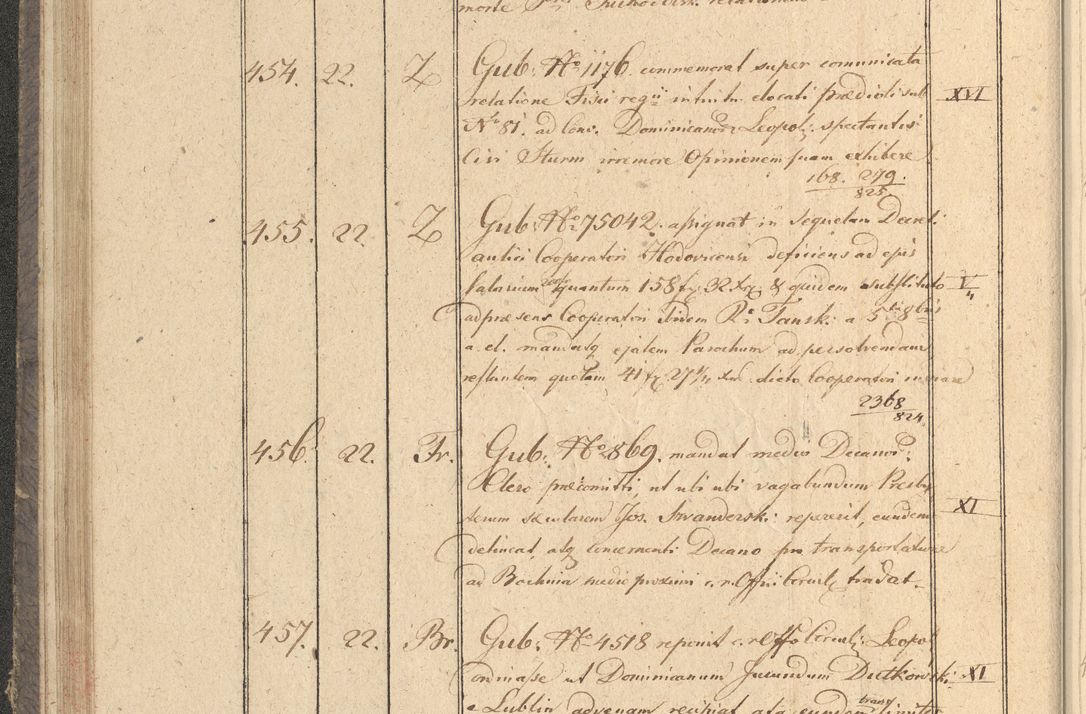 morte
454. 22. Z Gub: No 1176. commemorat super comunicata
relatione Fisci regii intuitu elocati prædioli sub XVI
No 81. ad Conv. Dominicanor Leopol: spectantis
Civi Sturm irremore Opinionem suam exhibere.
168. 279.
825.
455. 22. Z Gub: No 75042. assignat in sequelam Decreti
aulici Cooperatori Hodovicensi deficiens ad ejus
salarium quantum 158 f 32 xr & quidem substituto V/4
adpræsens Cooperatori ibidem R: Tanski a 5 8bris
a. el. mandatq ejatem Parochum ad persolvendam
restantem quotam 41 f 27 1/4 dicto Cooperatori
2368
824
456. 22. Fr. Gub: No 869. mandat medio Decanor:
Clero præcomitti, ut ubi ubi vagabundum Presby
terum sæcularem Jos. Swanderski repererit, eundem XI
detineat, atq concernenti Decano pro transportatione
ad Bochnia medio proximi c. r. Offii Circul: tradat.
457. 22. Br. Gub: No 4518 reponit c. r. Offo Circul: Leopol
ordinasse ut Dominicanum Jucundum Dutkowski XI
e Lublin advenam recipiat atq eundem limites
trans